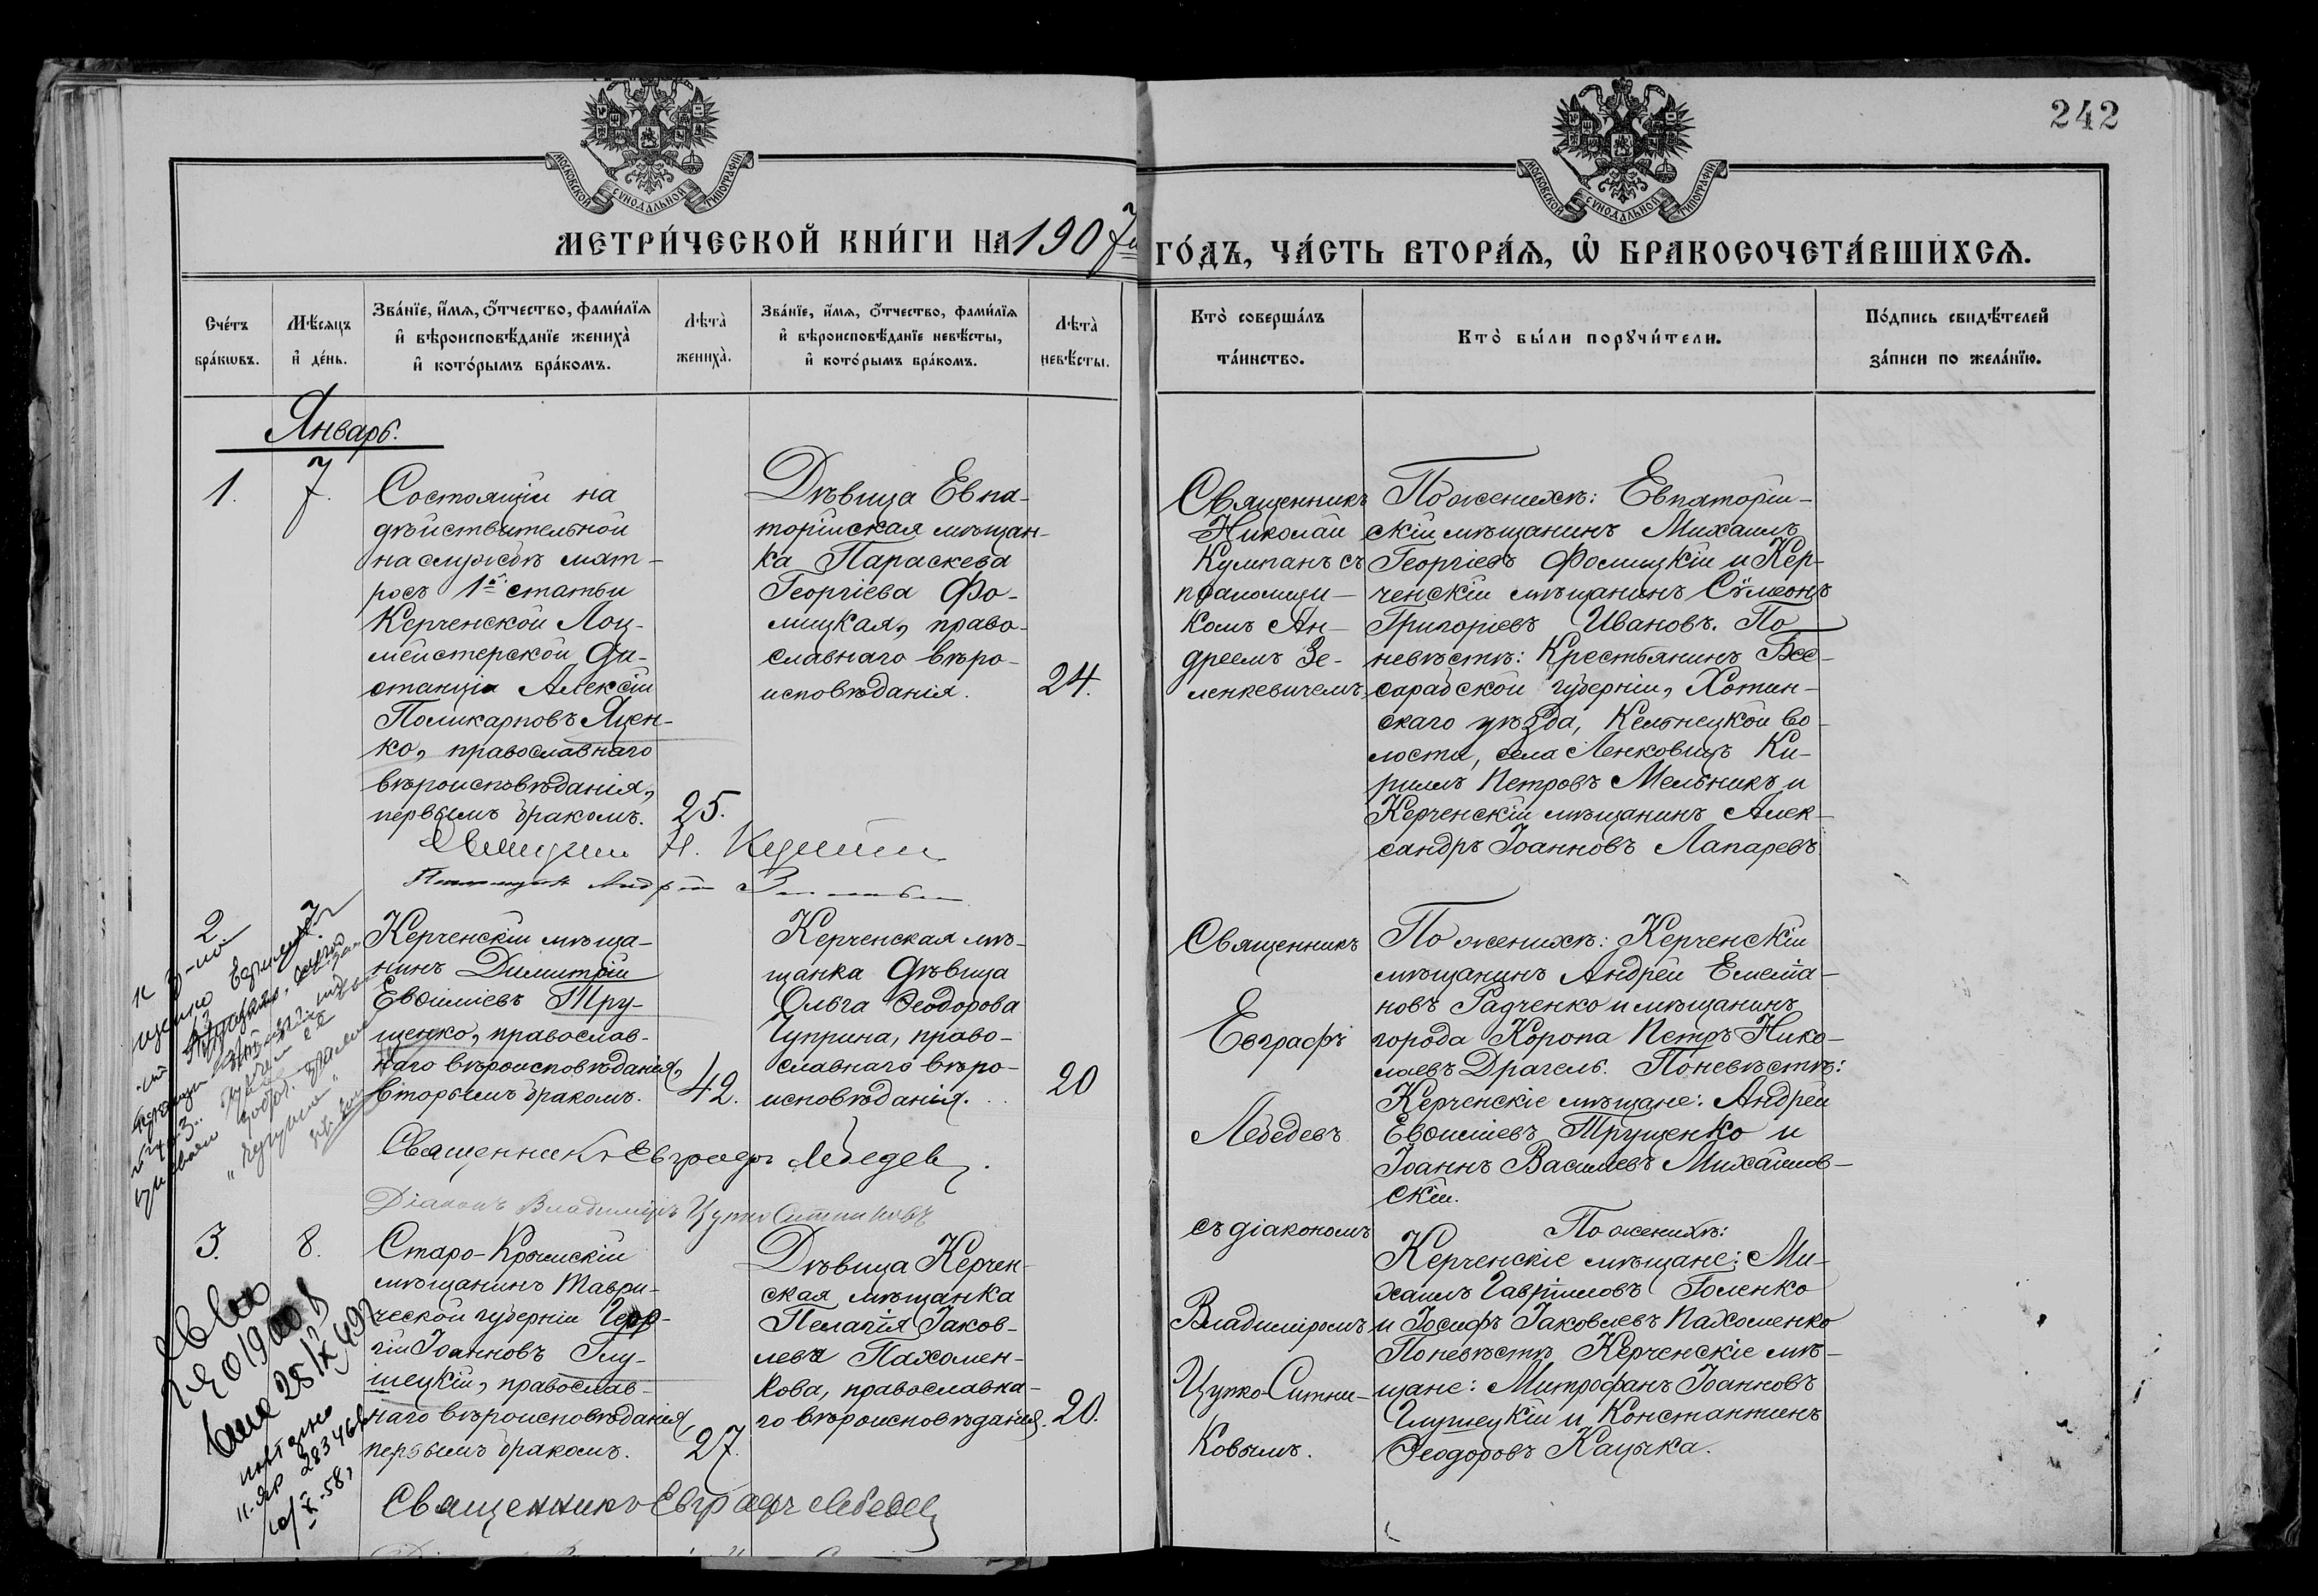 242
МОСКОВСКОЙ СѴНОДАЛЬНОЙ ТИПОГРАФІИ
МОСКОВСКОЙ СѴНОДАЛЬНОЙ ТИПОГРАФІИ
МЕТРИ́ЧЕСКОЙ КНИ́ГИ НА 1907й ГО́ДЪ, ЧА́СТЬ ВТОРА́Я, Ѡ҆ БРАКОСОЧЕТА́ВШИХСЯ.
Сче́тъ
бра́кѡвъ.
Мѣ́сяцъ
и҆ де́нь.
Зва́нїе, и҆́мя, ѻ҆́тчество, фами́лїя
и҆ вѣроисповѣ́данїе жениха̀
и҆ кото́рымъ бра́комъ.
Лѣта̀
жениха̀.
Зва́нїе, и҆́мя, ѻ҆́тчество, фами́лїя
и҆ вѣроисповѣ́данїе невѣ́сты,
и҆ кото́рымъ бра́комъ.
Лѣта̀
невѣ́сты.
Кто̀ соверша́лъ
та́инство.
Кто̀ бы́ли порꙋчи́тели.
По́дпись свидѣ́телей
за́писи по жела́нїю.
Январь.
1.
7.
Состоящій на
дѣйствительной
на службѣ мат-
росъ 1й статьи
Керченской Лоц-
мейстерской Ди-
станціи Алексій
Поликарповъ Яцен-
ко, православнаго
вѣроисповѣданія,
первымъ бракомъ.
25.
Дѣвица Евпа-
торійская мѣщан-
ка Параскева
Георгіева Фо-
мицкая, право-
славнаго вѣро-
исповѣданія.
24.
Священникъ
Николай
Кумпанъ съ
псаломщи-
комъ Ан-
дреемъ Зе-
ленкевичемъ
По женихѣ: Евпаторій-
скій мѣщанинъ Михаилъ
Георгіевъ Фомицкій и Кер-
ченскій мѣщанинъ Сѵмеонъ
Григоріевъ Ивановъ. По
невѣстѣ: Крестьянинъ Бес-
сарабской губерніи, Хотин-
скаго уѣзда, Кельнецкой во-
лости, села Ленковицъ Ки-
риллъ Петровъ Мельникъ и
Керченскій мѣщанинъ Алек-
сандръ Іоанновъ Лапаревъ
2.
7.
Керченскій мѣща-
нинъ Димитрій
Евѳиміевъ Тру-
щенко, православ-
наго вѣроисповѣданія,
вторымъ бракомъ.
42.
Керченская мѣ-
щанка дѣвица
Ольга Ѳеодорова
Чуприна, право-
славнаго вѣро-
исповѣданія.
20
Священникъ Евграфъ Лебедев
Діаконъ Владиміръ Цупко Ситниковъ
Священникъ
Евграфъ
Лебедевъ
По женихѣ: Керченскій
мѣщанинъ Андрей Емелiа-
новъ Радченко и мѣщанинъ
города Коропа Петръ Нико-
лаевъ Драгель. По невѣстѣ:
Керченскіе мѣщане: Андрей
Евѳиміевъ Трущенко и
Іоаннъ Василіевъ Михайлов-
скій.
3.
8.
Старо-Крымскій
мѣщанинъ Таври-
ческой губерніи Геор-
гій Іоанновъ Глу-
шецкій, православ-
наго вѣроисповѣданія,
первымъ бракомъ.
27.
Дѣвица Керчен-
ская мѣщанка
Пелагія Іаков-
лева Пахомен-
кова, православна-
го вѣроисповѣданія.
20.
Священникъ Евграфъ Лебедев
съ діакономъ
Владиміромъ
Цупко-Ситни-
ковымъ.
По женихѣ:
Керченскіе мѣщане: Ми-
хаилъ Гавріиловъ Голенко
и Іосифъ Іаковлевъ Пахоменко
По невѣстѣ Керченскіе мѣ-
щане: Митрофанъ Іоанновъ
Глушецкій и Константинъ
Ѳеодоровъ Кацыка.